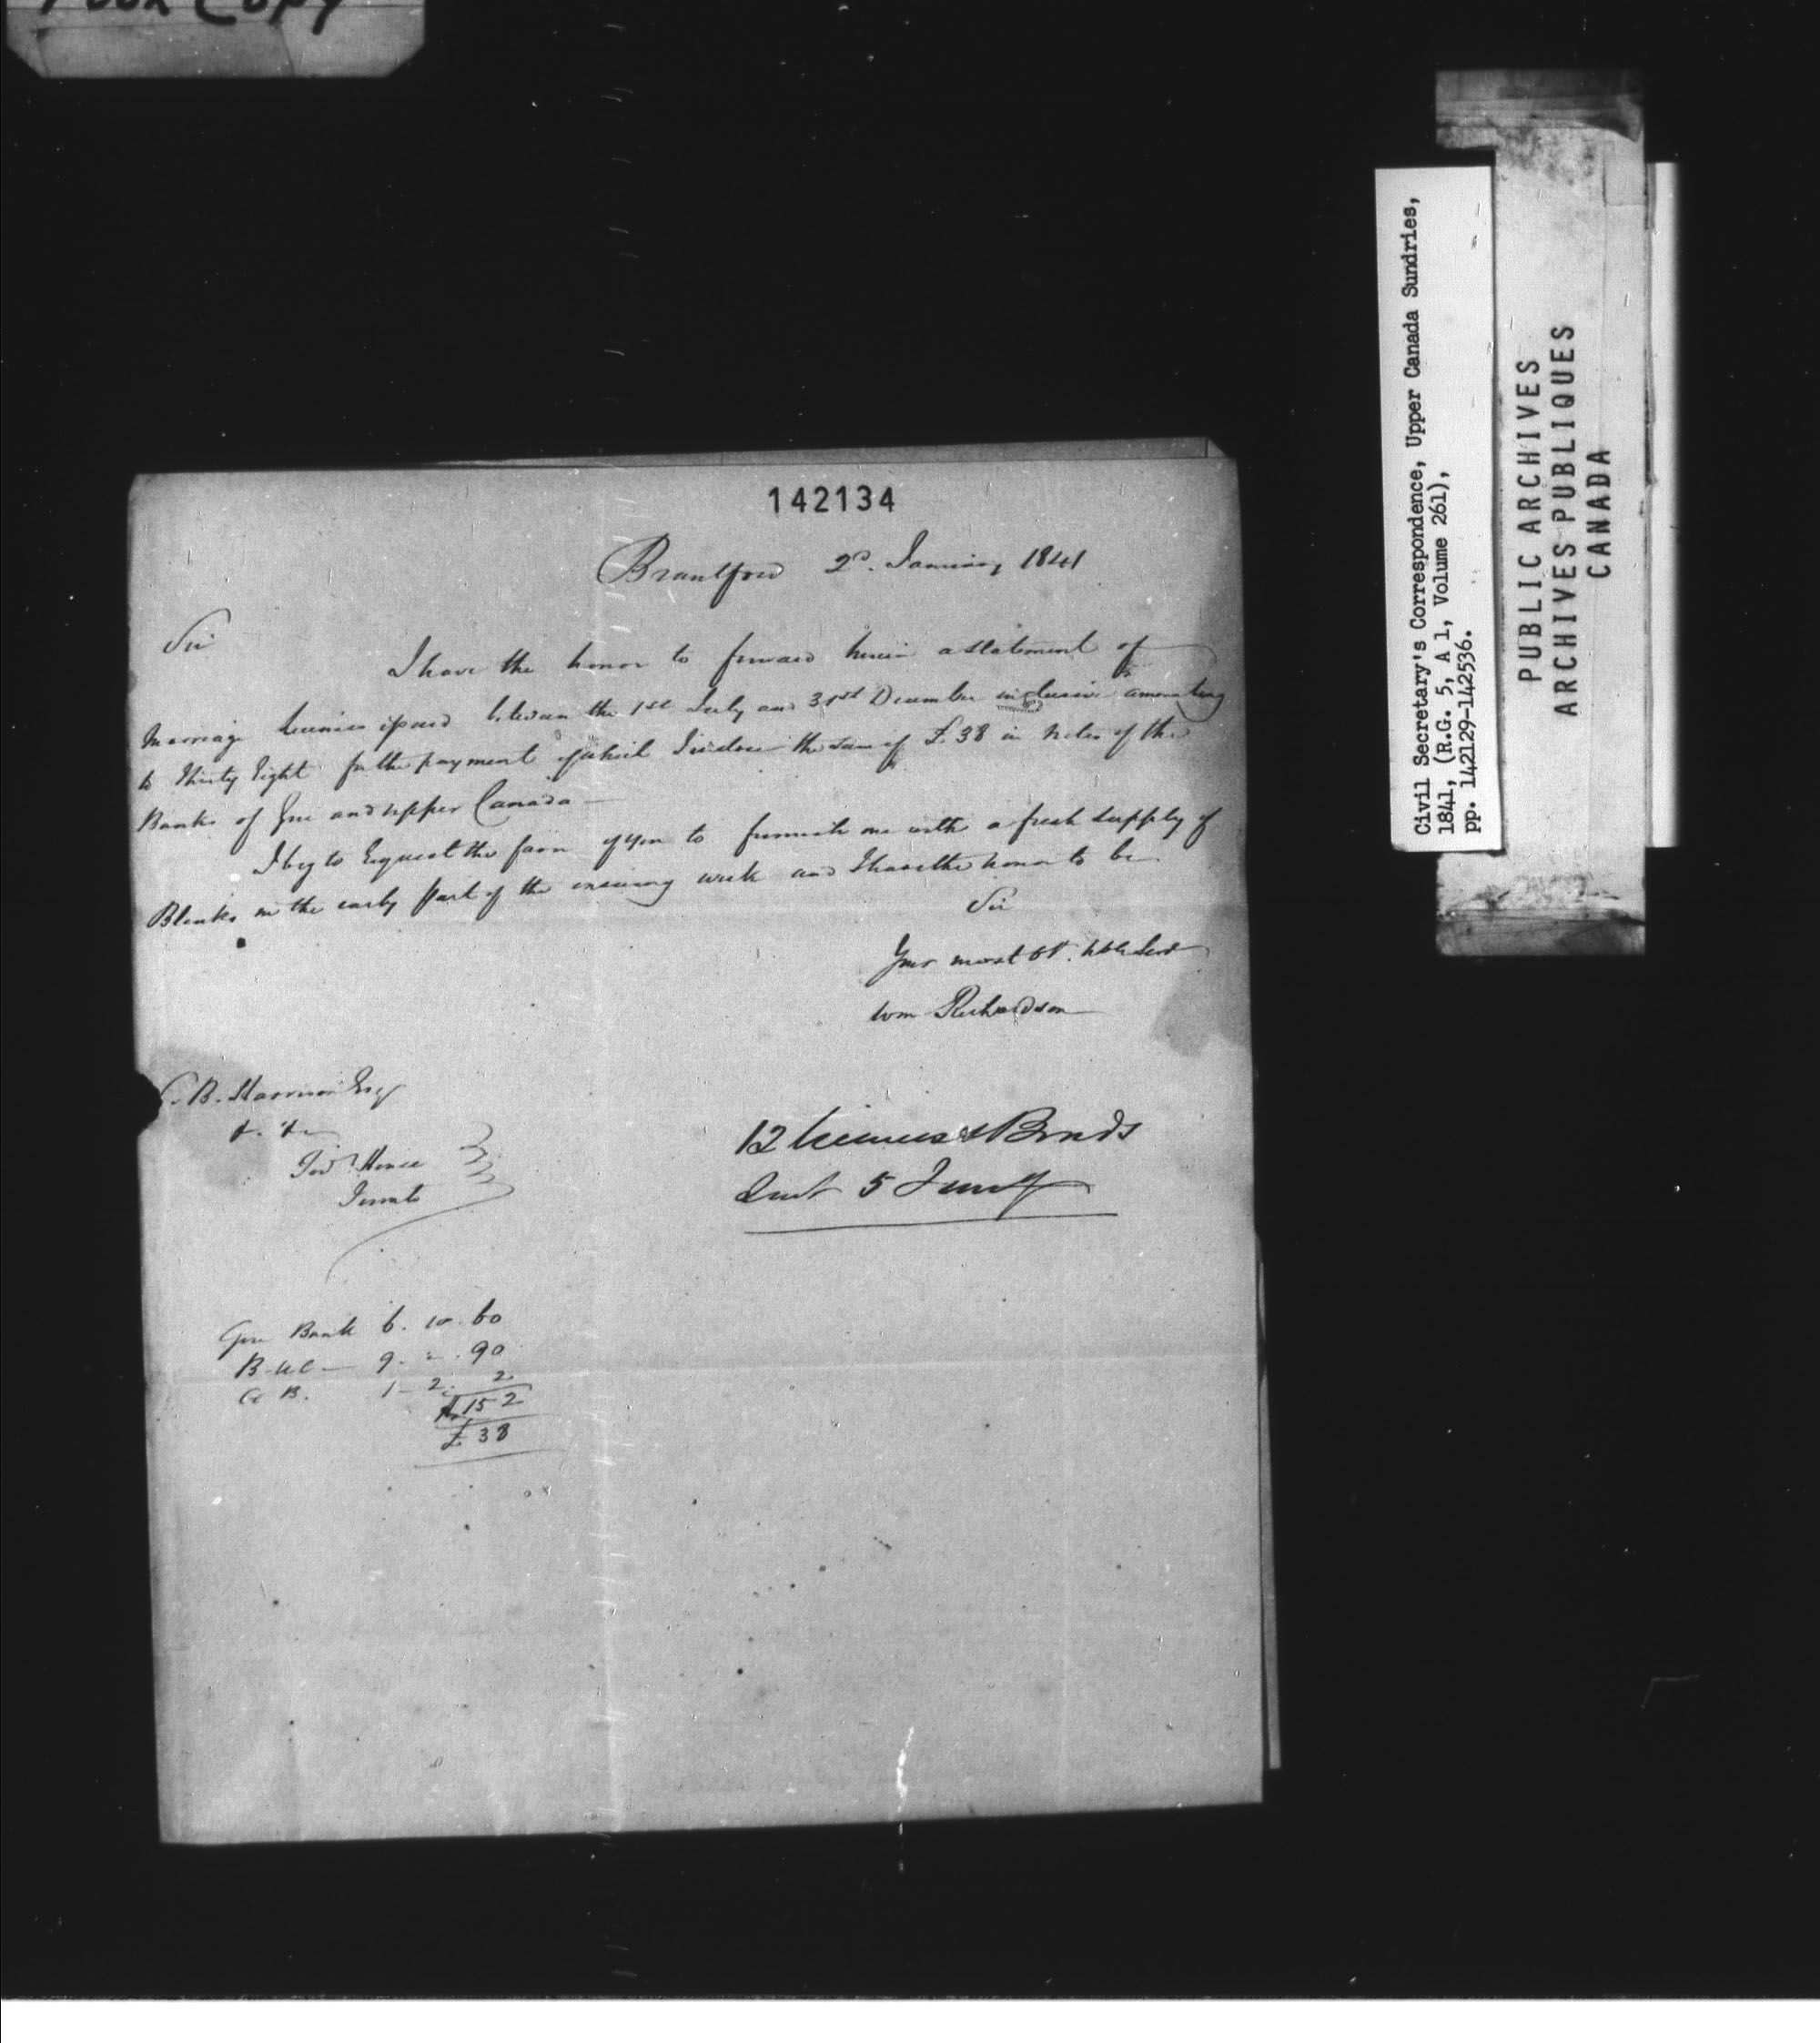 Poor Copy
142134
Brantford 2d. January 1841
Sir
I have the honor to forward herein a statement of
Marriage Licenses issued between the 1st July and 31st December inclusive amounting
to Thirty Eight for the payment of which I inclose the sum of £38 in Notes of the
Banks of Gore and Upper Canada —
I beg to request the favor of you to furnish me with a fresh supply of
Blanks in the early part of the ensuing week and I have the honor to be
Sir
Your most Ot. Hble Servt
Wm Richardson
S. B. Harrison Esq
&c. &c
Govt House
Toronto
12 Licenses & Bonds
Sent 5 Jany
Gore Bank 6. 10. 60
B.U.C— 9. " . 90
G B. 1 - 2. 2
152
£38
Civil Secretary's Correspondence, Upper Canada Sundries,
1841, (R.G. 5, A 1, Volume 261),
pp. 142129-142536.
PUBLIC ARCHIVES
ARCHIVES PUBLIQUES
CANADA